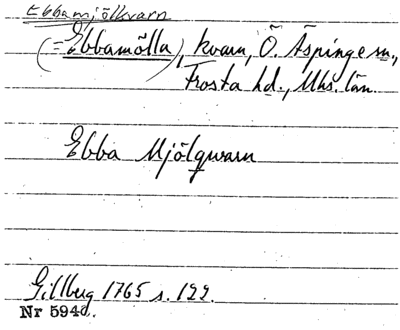 Ebbamjölkvarn
(= Ebbamölla), kvarn, Ö. Äspinge sn.,
Frosta hd., Mhs. län.
Ebba Mjölqwarn
Gillberg 1765 s. 122.
Nr 5940.